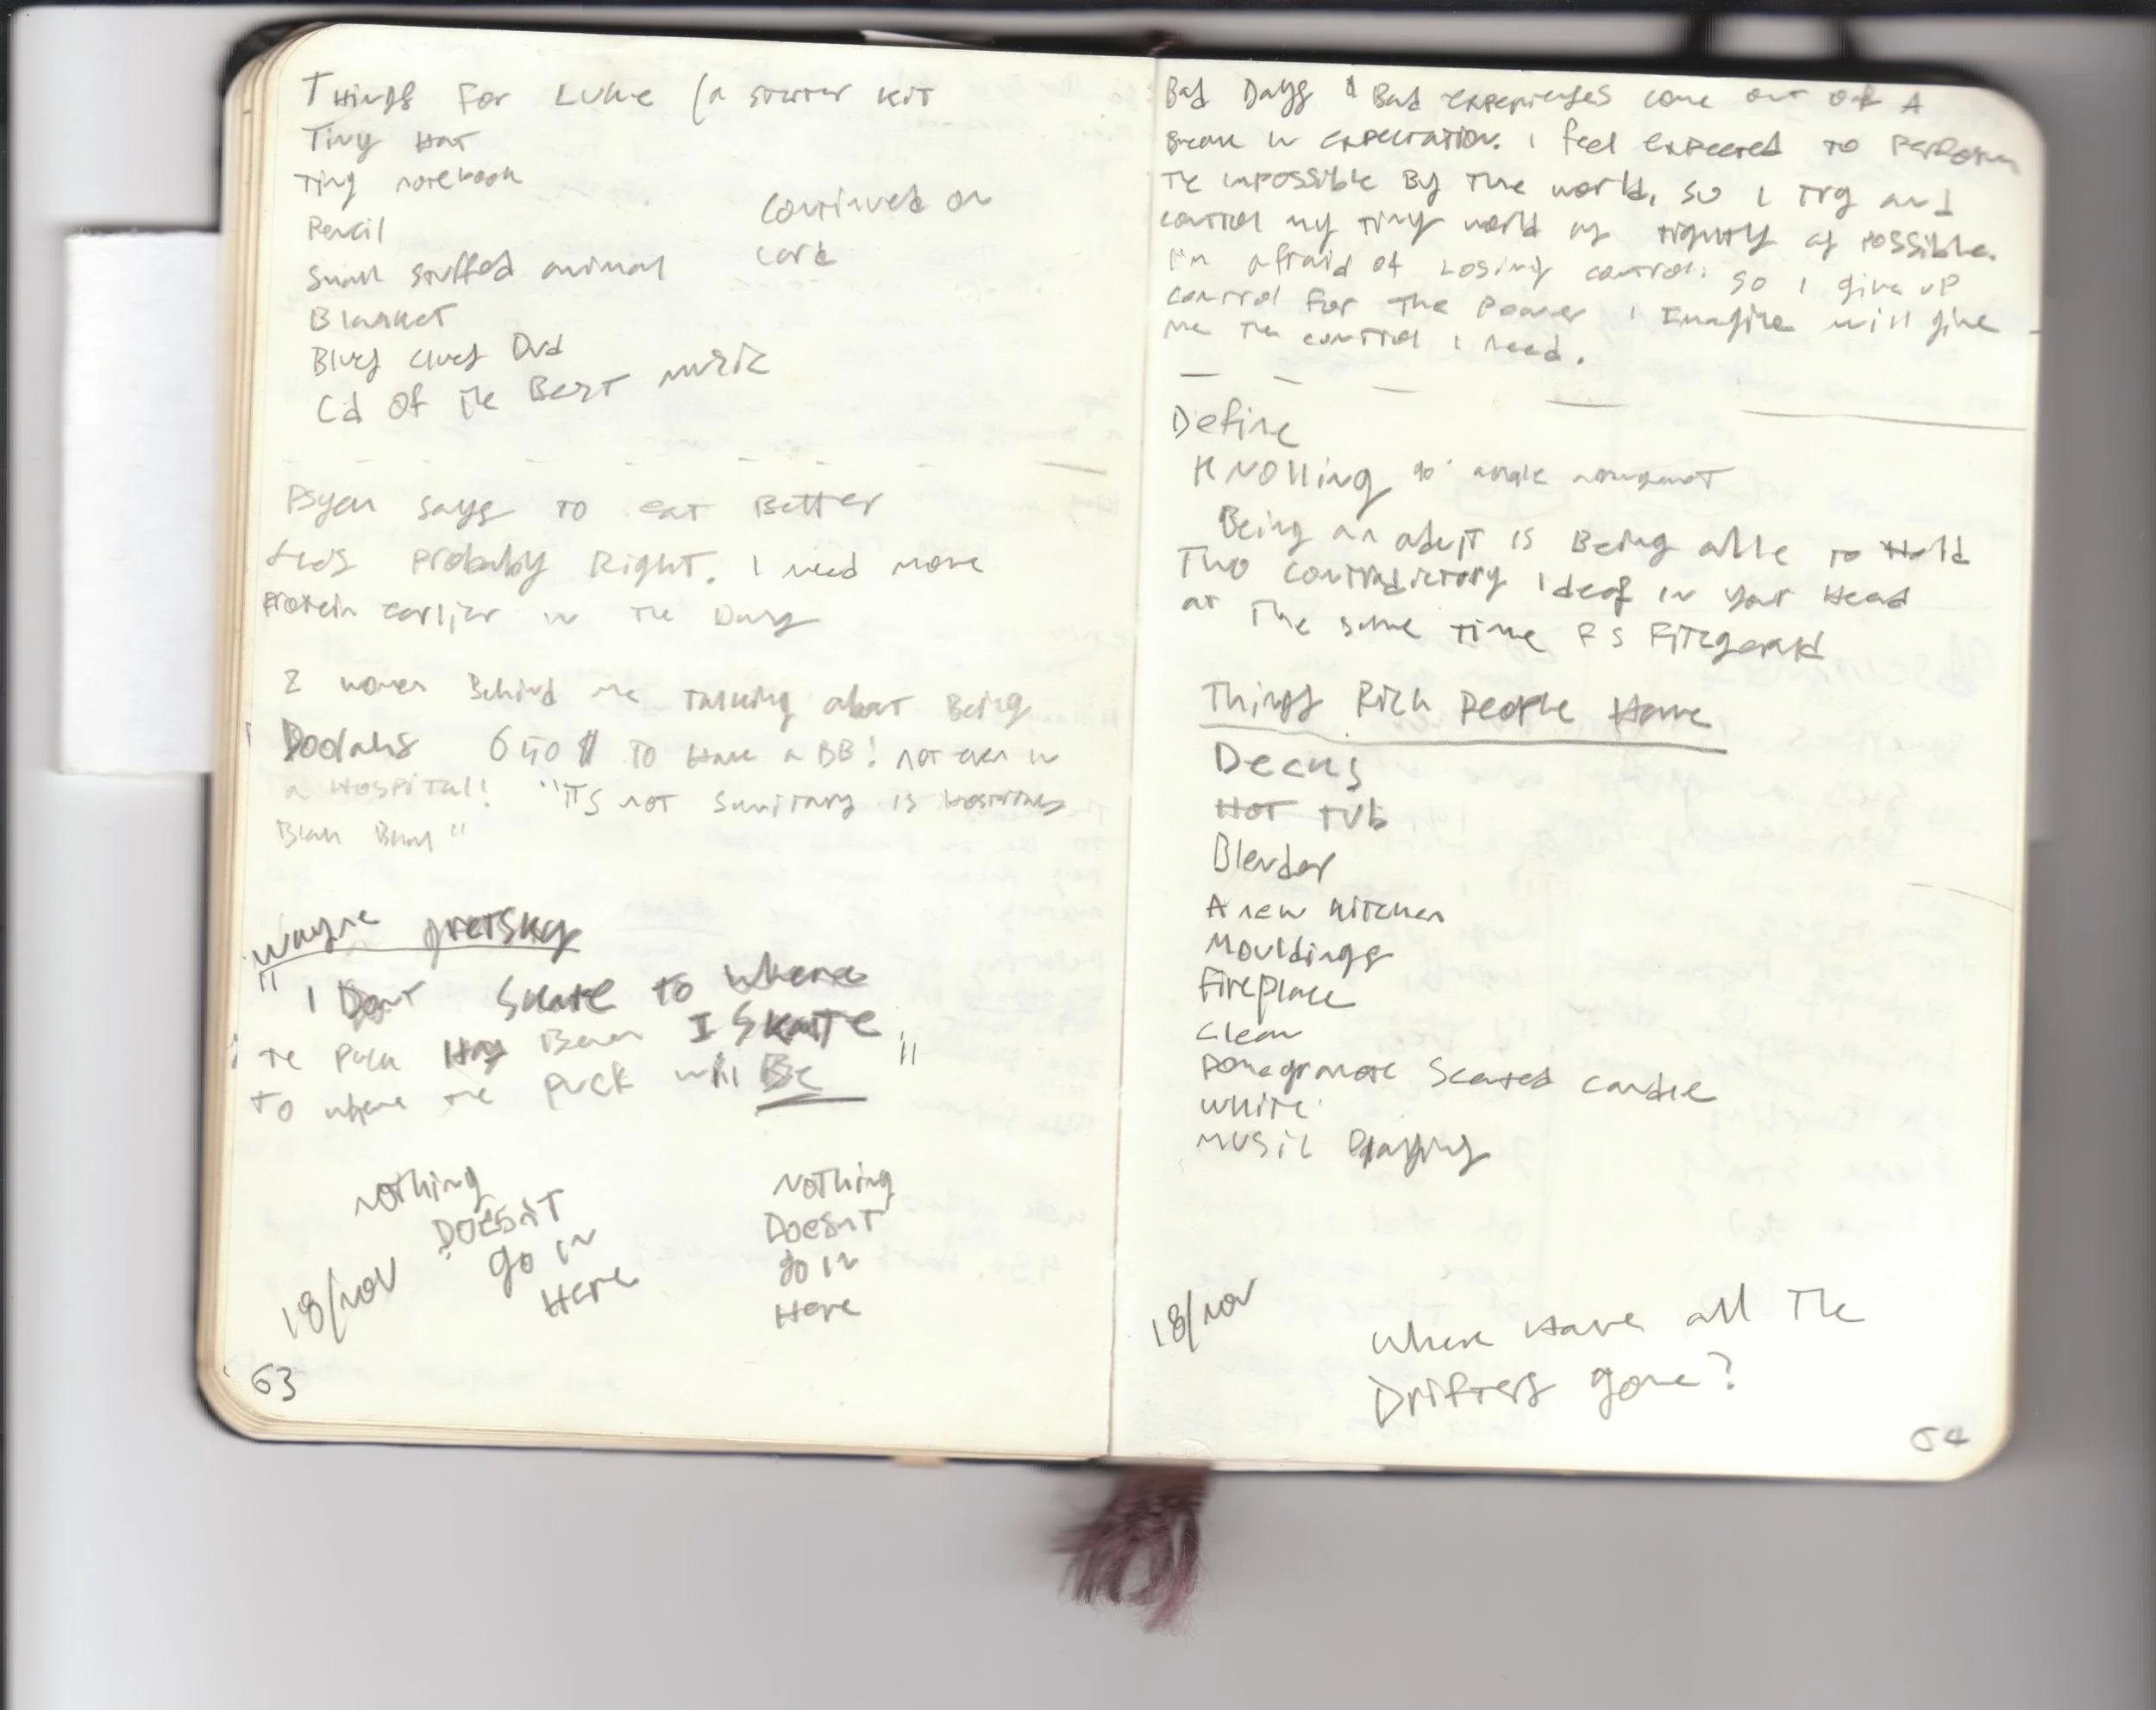 Things For Luke (a starter kit
Tiny Hat
Tiny notebook
Pencil
Small stuffed animal
Blanket
Blues clues Dvd
Cd of the Best music
continued on
card
Psych says to eat Better
probably Right. I need more
protein earlier in the Day
2 women Behind me talking about Being
Doolahs 6 $ to Have a BB! not even in
a Hospital! "its not sanitary is hospitals
Blah Blah"
Wayne gretsky
" I Dont skate to where
the puck Has Been I SKATE
to where the puck will Be "
nothing
DOESNT
go in
Here
nothing
Doesnt
go in
Here
18/nov
63
Bad Days & Bad experiences come out of A
Break in expectation. I feel expected to perform
the impossible By the world, so I try and
control my tiny world as tightly as possible.
I'm afraid of Losing control. so I give up
control for the power I Imagine will give
me the control I need.
Define
Knolling 90° angle
Being an adult is Being able to Hold
Two contradictory Ideas in your Head
at The same time F S Fitzgerald
Things Rich People Have
Decks
HOT TUb
Blender
A new kitchen
Mouldings
Fireplace
clean
pomegranate Scented candle
white
music playing
18/nov
where Have all The
Drifters gone?
64